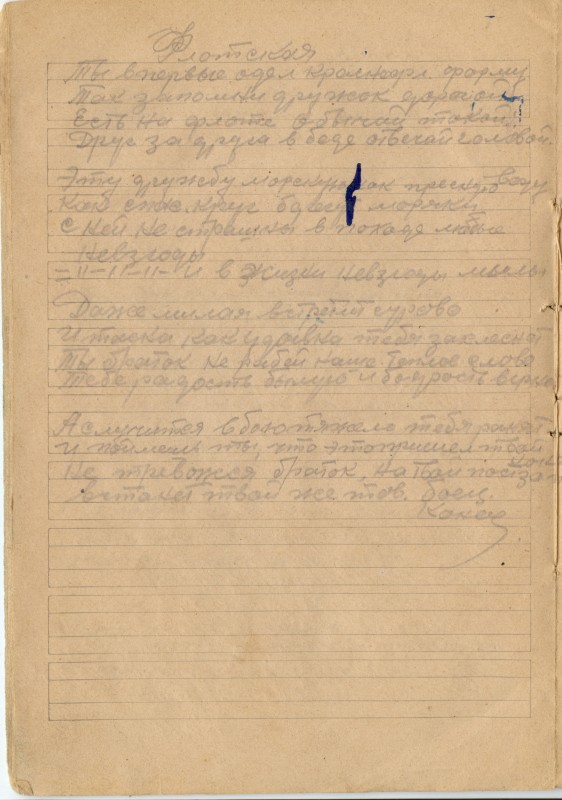 Флотская
Ты впервые одел краснофл. форму
Так запомни дружок дорогой
Есть на флоте обычай такой
Друг за друга в беде отвечай головой.
Эту дружбу морскую как пресную воду
Как спас. круг моряки
С ней не страшны в походе любые
Невзгоды
-"-"-"- и в жизни невзгоды
Даже милая встретит сурово
И тоска как удавка тебя захлеснет
Ты браток не робей наше теплое слово
Тебе радость былую и бодрость вернет
А случится в бою тяжело тебя ранят
и поймешь ты, что это пришел твой
конец
Не тревожся браток, на твой пост
встанет твой же тов. боец.
Конец